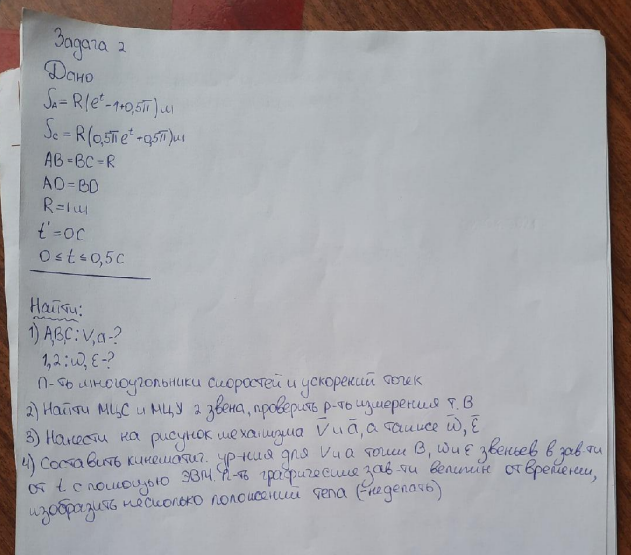 Задача 2
Дано
S_A = R(e^t - 1 + 0,5π) м
S_C = R(0,5π e^t + 0,5π) м
AB = BC = R
AD = BD
R = 1 м
t' = 0 с
0 ≤ t ≤ 0,5 с
Найти:
1) A,B,C: V, a - ?
1,2: ω, ε - ?
П-ть многоугольники скоростей и ускорений точек
2) Найти МЦС и МЦУ 2 звена, проверить р-ть измерения т. В
3) Нанести на рисунок механизма V̄ и ā, а также ω̄, ε̄
4) Составить кинематич. ур-ния для V и a точки В, ω и ε звеньев в зав-ти
от t с помощью ЭВМ. П-ть графические зав-ти величин от времени,
изобразить несколько положений тела (-не делать)